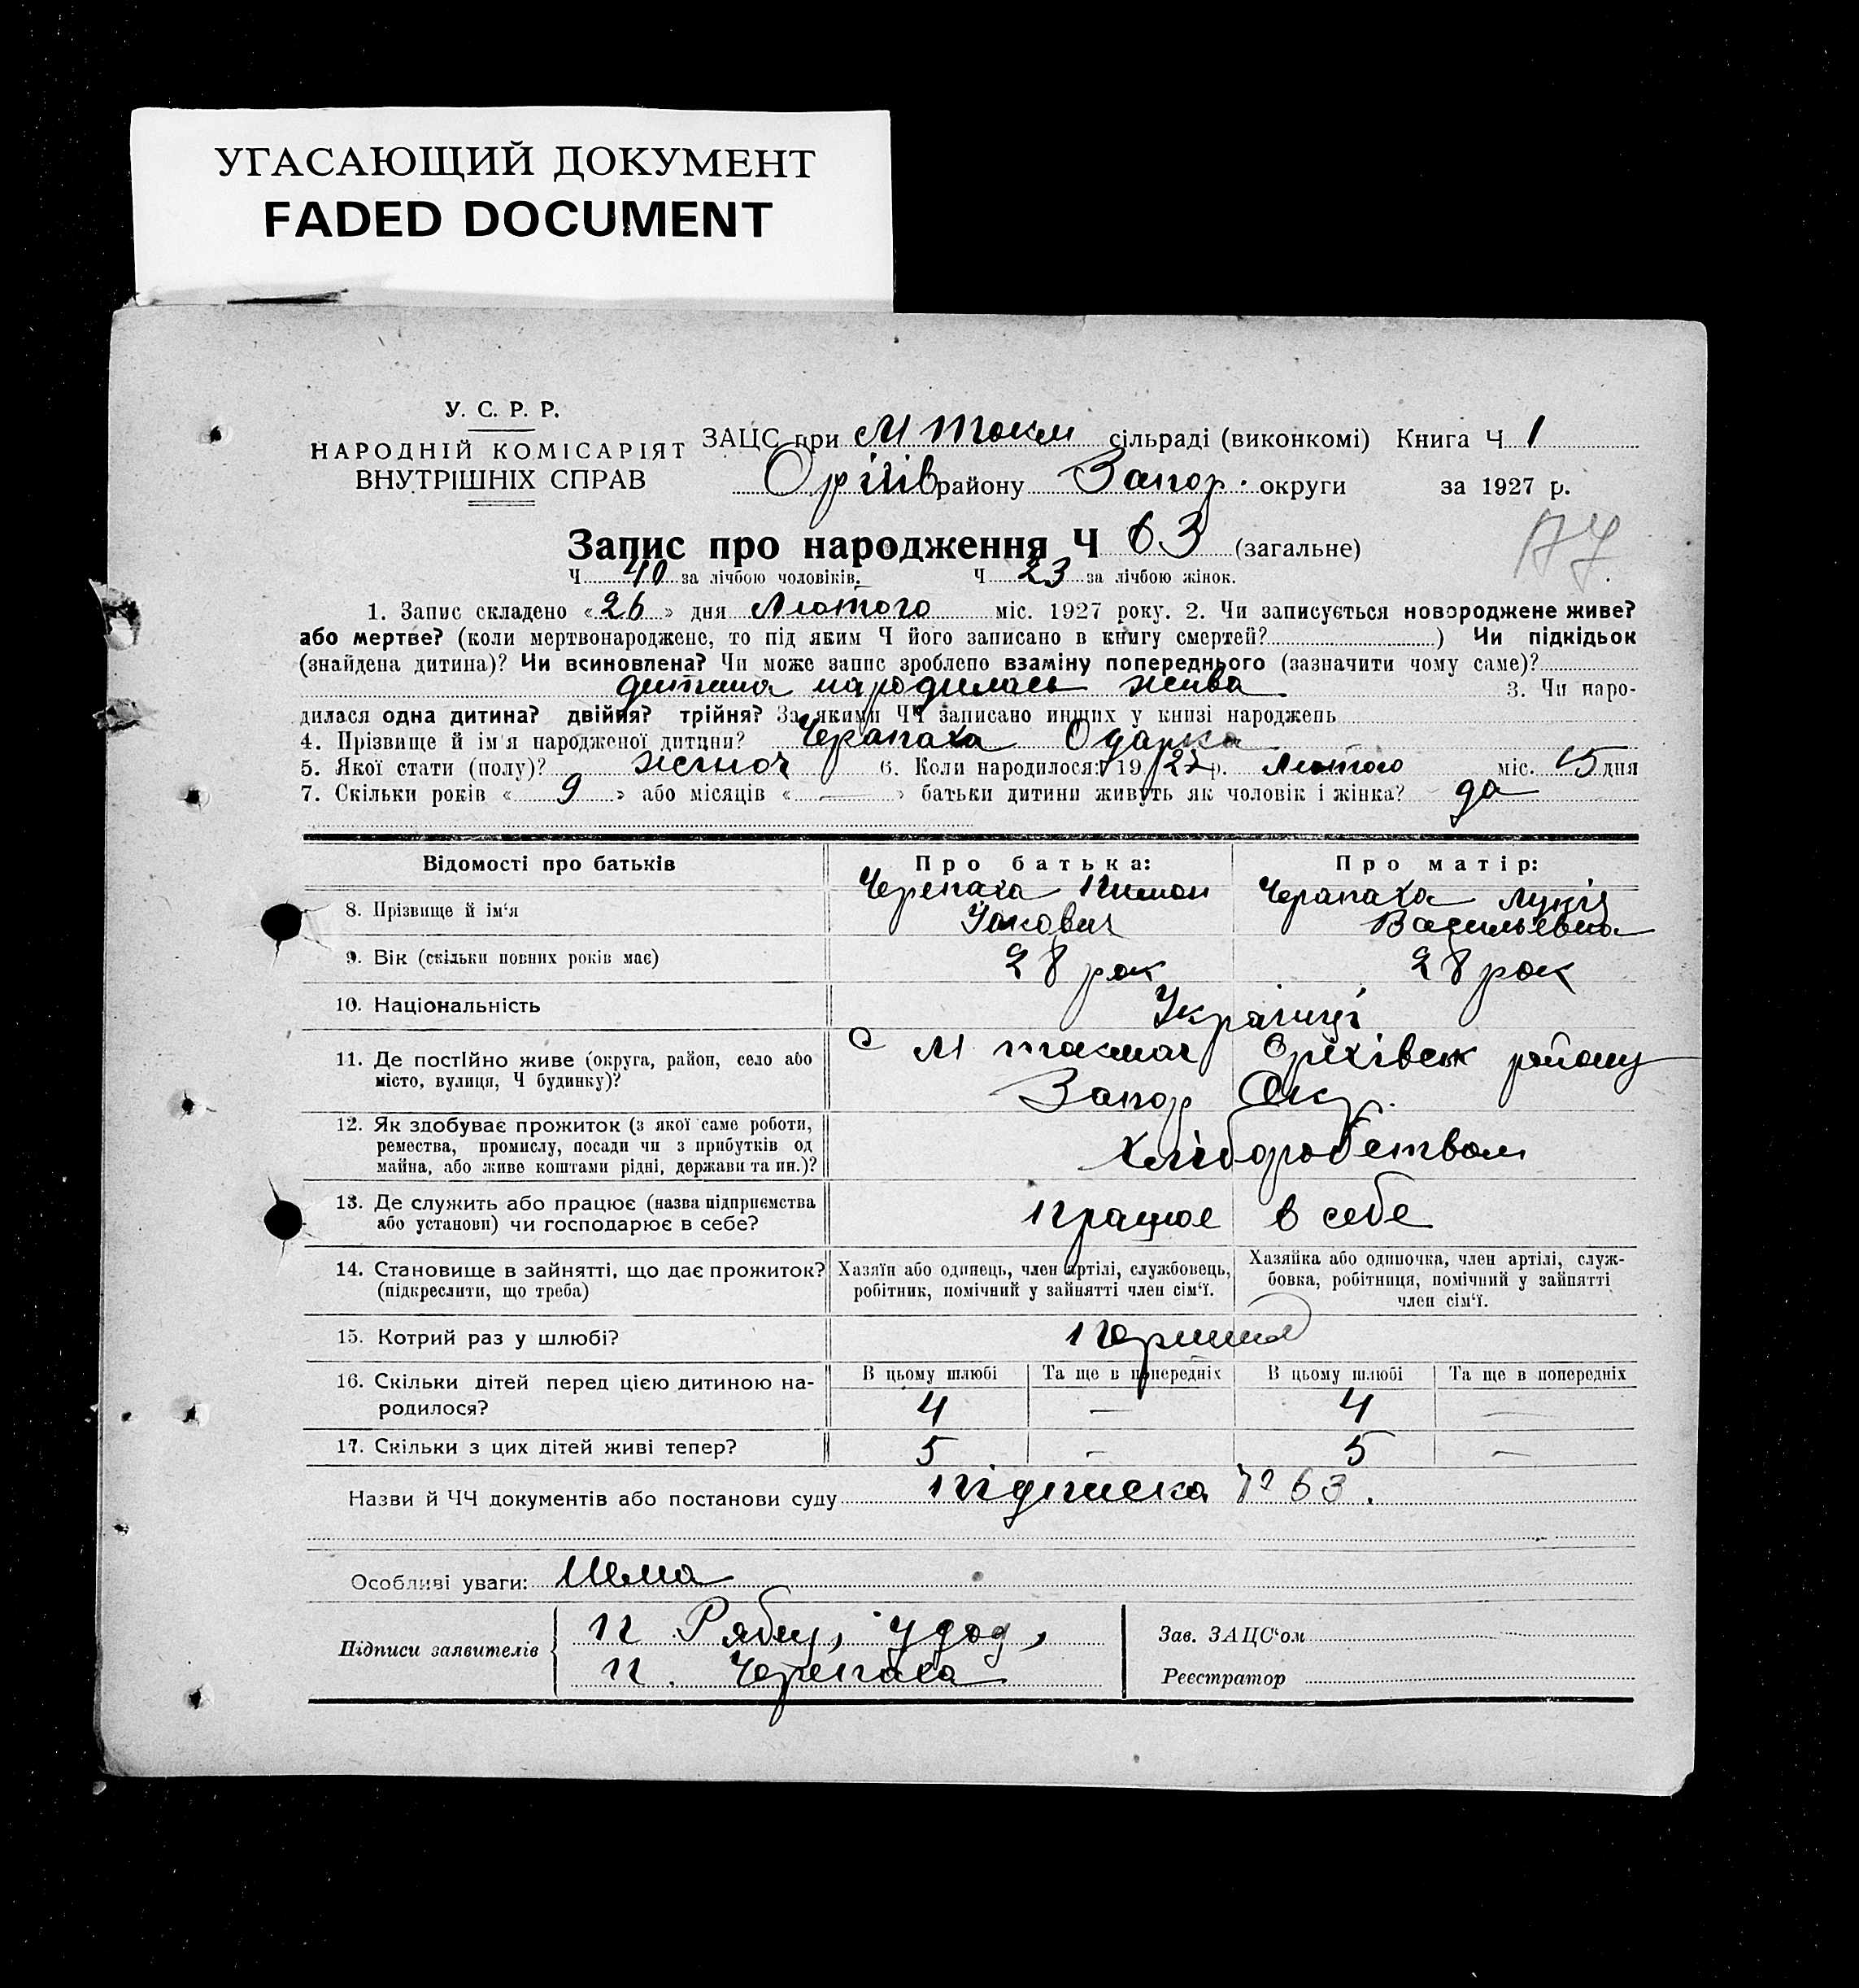 УГАСАЮЩИЙ ДОКУМЕНТ
FADED DOCUMENT
У. С. Р. Р.
НАРОДНІЙ КОМІСАРІЯТ
ВНУТРІШНІХ СПРАВ
ЗАЦС при М Токм сільраді (виконкомі) Книга Ч 1
Оріхів району Запор. округи за 1927 р.
Запис про народження Ч 63 (загальне)
Ч 40 за лічбою чоловіків. Ч 23 за лічбою жінок.
1. Запис складено «26» дня Лютого міс. 1927 року. 2. Чи записується новороджене живе?
або мертве? (коли мертвонароджене, то під яким Ч його записано в книгу смертей? ) Чи підкідьок
(знайдена дитина)? Чи всиновлена? Чи може запис зроблено взаміну попереднього (зазначити чому саме)?
дитина народилась жива 3. Чи наро-
дилася одна дитина? двійня? трійня? За якими ЧЧ записано инших у книзі народжень
4. Прізвище й ім'я народженої дитини? Черапаха Одарка
5. Якої стати (полу)? жіноч 6. Коли народилося: 1927 р. Лютого міс. 15 дня
7. Скільки років «9» або місяців «—» батьки дитини живуть як чоловік і жінка? да
Відомості про батьків Про батька: Про матір:
8. Прізвище й ім'я Черепаха Пимон Черапаха Лукія
Іакович Васильевна
9. Вік (скільки повних років має) 28 рок 28 рок
10. Національність Українці
11. Де постійно живе (округа, район, село або
місто, вулиця, Ч будинку)?
С М токмач Оріхівськ району
Запор Окр.
12. Як здобуває прожиток (з якої саме роботи,
ремества, промислу, посади чи з прибутків од
майна, або живе коштами рідні, держави та ин.)?
Хліборобством
13. Де служить або працює (назва підприємства
або установи) чи господарює в себе?
працює в себе
14. Становище в зайнятті, що дає прожиток?
(підкреслити, що треба)
Хазяїн або одинець, член артілі, службовець,
робітник, помічний у зайнятті член сім'ї.
Хазяйка або одиночка, член артілі, служ-
бовка, робітниця, помічний у зайнятті
член сім'ї.
15. Котрий раз у шлюбі? перший
16. Скільки дітей перед цією дитиною на-
родилося?
В цьому шлюбі Та ще в попередніх В цьому шлюбі Та ще в попередніх
4 — 4 —
17. Скільки з цих дітей живі тепер? 5 — 5 —
Назви й ЧЧ документів або постанови суду підписка № 63.
Особливі уваги: Нема
Підписи заявителів
п Рябец, удод,
п. Черепаха
Зав. ЗАЦС'ом
Реєстратор